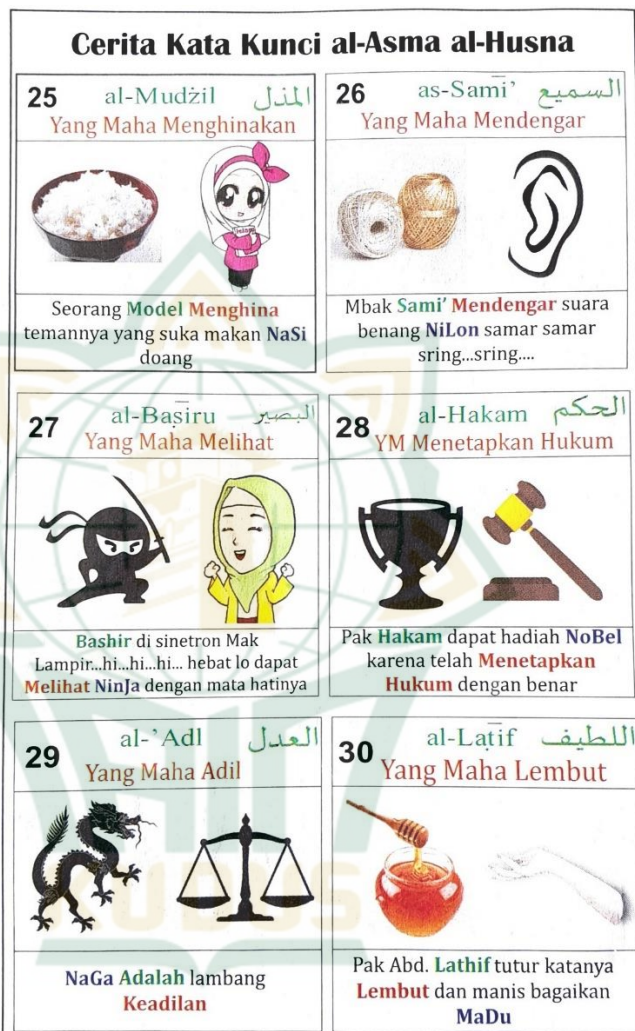 Cerita Kata Kunci al-Asma al-Husna
25 al-Mudżil المذل
Yang Maha Menghinakan
Seorang Model Menghina
temannya yang suka makan NaSi
doang
26 as-Samī' السميع
Yang Maha Mendengar
Mbak Sami' Mendengar suara
benang NiLon samar samar
sring...sring....
27 al-Baṣīru البصير
Yang Maha Melihat
Bashir di sinetron Mak
Lampir...hi...hi...hi... hebat lo dapat
Melihat NinJa dengan mata hatinya
28 al-Hakam الحكم
YM Menetapkan Hukum
Pak Hakam dapat hadiah NoBel
karena telah Menetapkan
Hukum dengan benar
29 al-'Adl العدل
Yang Maha Adil
NaGa Adalah lambang
Keadilan
30 al-Laṭīf اللطيف
Yang Maha Lembut
Pak Abd. Lathif tutur katanya
Lembut dan manis bagaikan
MaDu
KUDUS